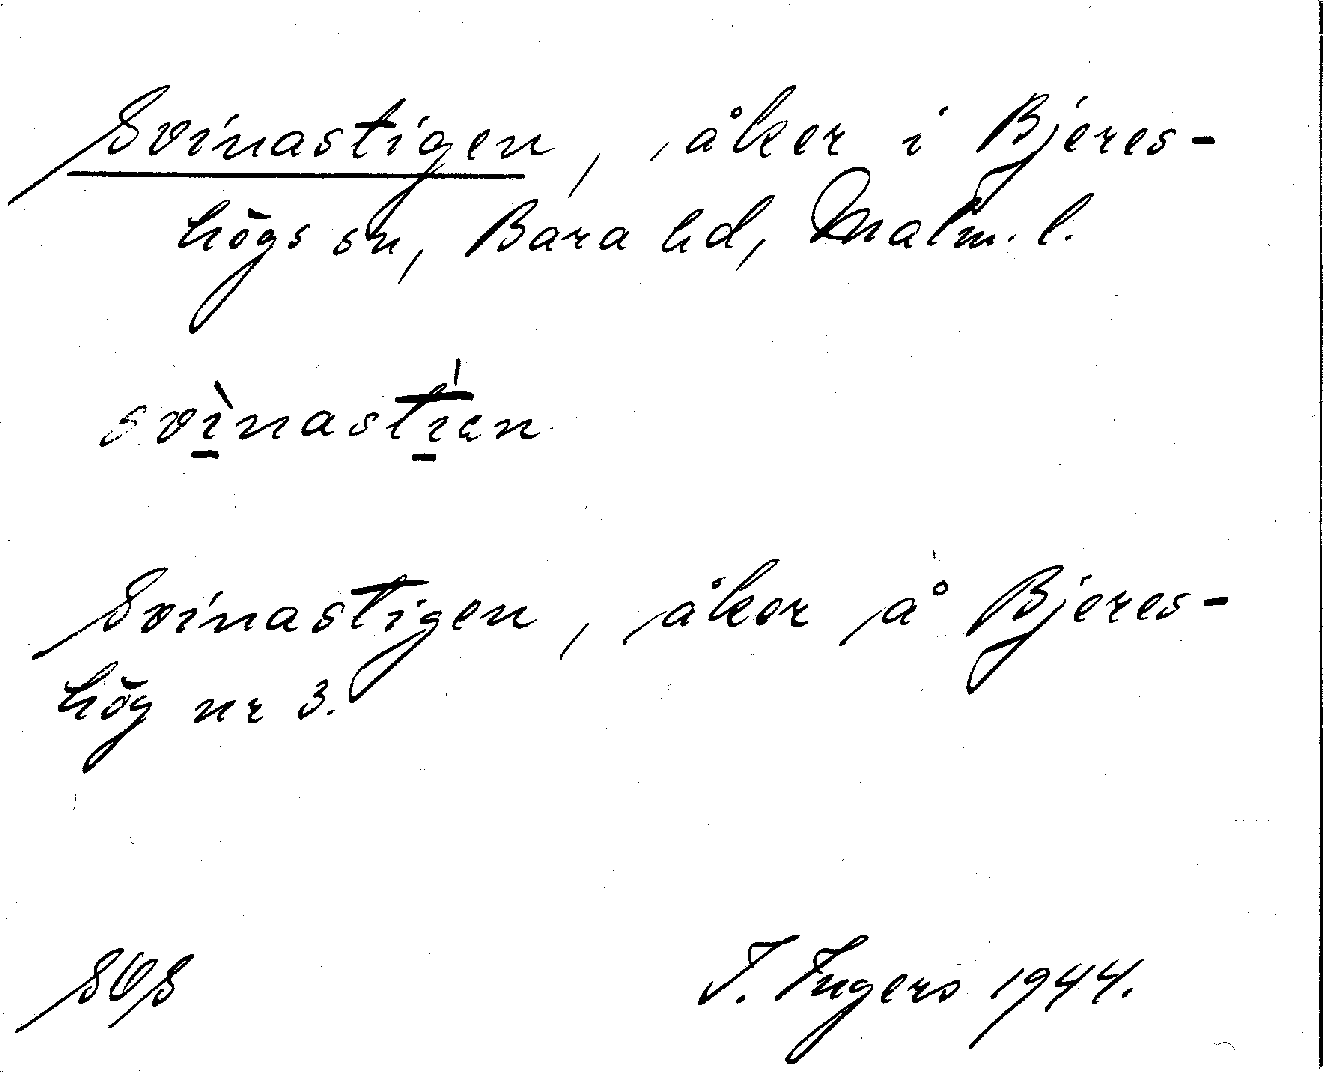 Svinastigen, åker i Bjeres-
högs sn, Bara hd, Malm. l.
svì̠nastí̠en
Svinastigen, åker å Bjeres-
hög nr 3.
SOS I. Ingers 1944.